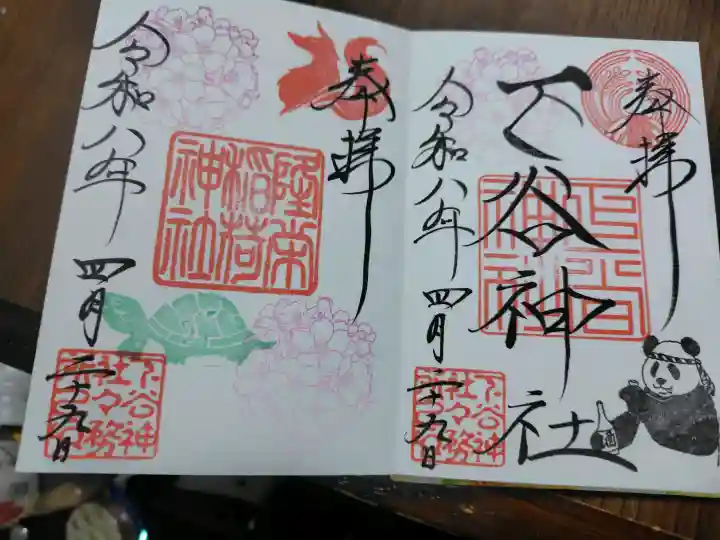 奉拝
下谷神社
下谷神社
令和八年 四月二十九日
下谷神
社々務
所之印
酒
奉拝
隆栄
稲荷
神社
令和八年 四月二十九日
下谷神
社々務
所之印